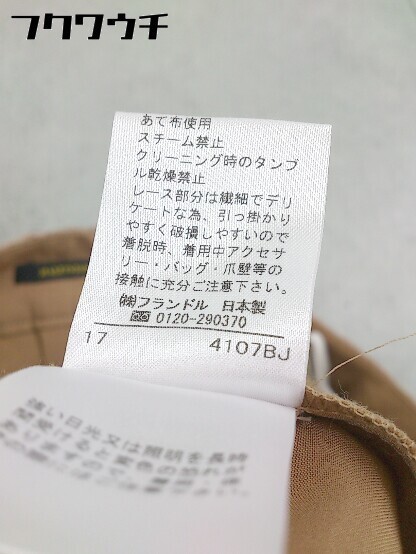 フクワウチ
あて布使用
スチーム禁止
クリーニング時のタンブ
ル乾燥禁止
レース部分は繊細でデリ
ケートな為、引っ掛かり
やすく破損しやすいので
着脱時、着用中アクセサ
リー・バッグ・爪壁等の
接触に充分ご注意下さい。
㈱フランドル 日本製
0120-290370
17 4107BJ
強い日光又は照明を長時
間受けると変色の恐れが
ありますので